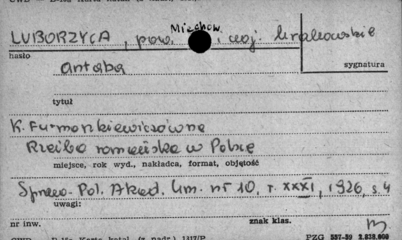 Miechow.
LUBORZYCA, pow. , woj. krakowskie
hasło
sygnatura
antaba
tytuł
K. Furmankiewiczówna
Rzeźba romańska w Polsce
miejsce, rok wyd., nakładca, format, objętość
Sprawo. Pol. Akad. Um. nr 10, t. XXXI, 1926, s. 4
uwagi:
nr inw.
znak klas.
PZG